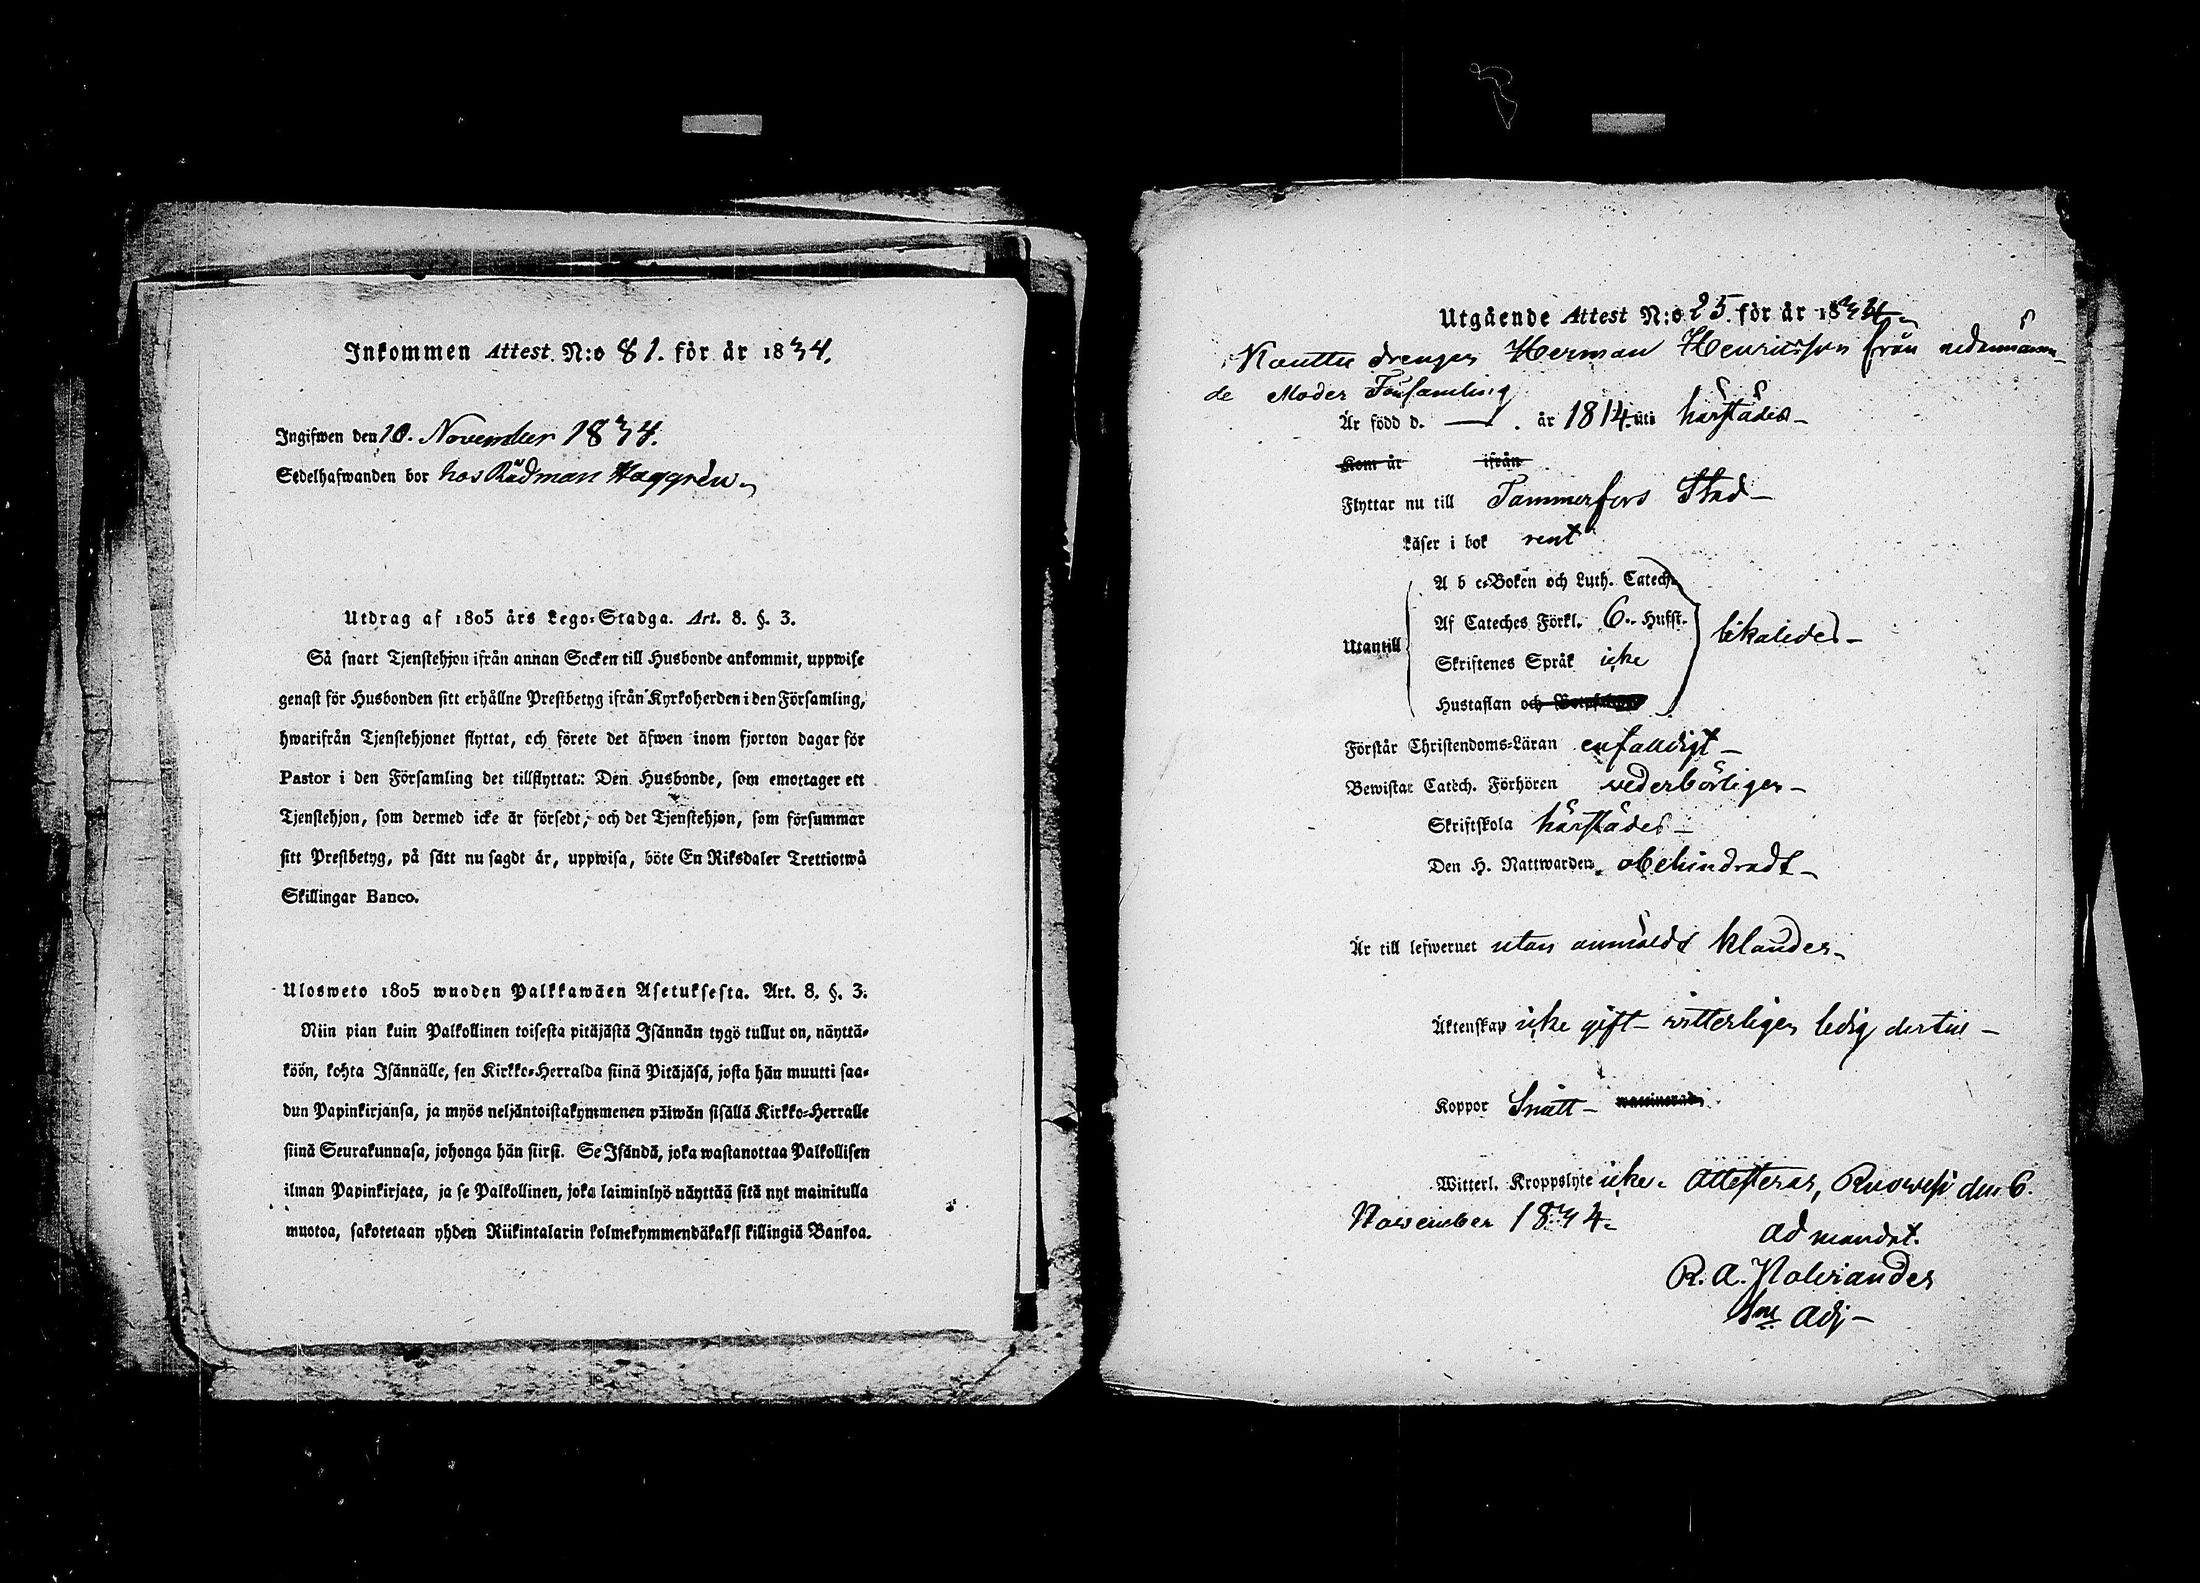 Inkommen Attest N:o 81. för år 1834.
Ingifwen den 10. November 1834.
Sedelhafwanden bor hos Rådman Haggrén.
Utdrag af 1805 års Lego-Stadga. Art. 8. §. 3.
Så snart Tjenstehjon ifrån annan Socken till Husbonde ankommit, uppwise
genast för Husbonden sitt erhållne Prestbetyg ifrån Kyrkoherden i den Församling,
hwarifrån Tjenstehjonet flyttat, och förete det äfwen inom fjorton dagar för
Pastor i den Församling det tillflyttat: Den Husbonde, som emottager ett
Tjenstehjon, som dermed icke är försedt, och det Tjenstehjon, som försummar
sitt Prestbetyg, på sätt nu sagdt är, uppwisa, böte En Riksdaler Trettiotwå
Skillingar Banco.
Ulosweto 1805 wuoden Palkkawäen Asetuksesta. Art. 8. §. 3.
Niin pian kuin Palkollinen toisesta pitäjästä Isännän tygö tullut on, näyttä-
köön, kohta Isännälle, sen Kirkko-Herralda siinä Pitäjäsä, josta hän muutti saa-
dun Papinkirjansa, ja myös neljäntoistakymmenen päiwän sisällä Kirkko-Herralle
siinä Seurakunnasa, johonga hän siirsi. Se Isändä, joka wastanottaa Palkollisen
ilman Papinkirjata, ja se Palkollinen, joka laiminlyö näyttää sitä nyt mainitulla
muotoa, sakotetaan yhden Riikintalarin kolmekymmendäkaksi killingiä Bankoa.
Utgående Attest N:o 25. för år 1834
Kauttu drengen Herman Henricsson från nedannämn-
de Moder Församling
Är född d. — . år 1814. uti härstädes
Kom år ifrån
Flyttar nu till Tammerfors Stad
Läser i bok rent
A b c-Boken och Luth. Catech.
Af Cateches Förkl. 6. Hufst.
Utantill likaledes
Skriftenes Språk icke
Hustaflan och
Förstår Christendoms-Läran enfaldigt
Bewistar Catech. Förhören vederbörligen
Skriftskola härstädes
Den H. Nattwarden obehindradt
Är till lefwernet utan anmäldt klander
Äktenskap icke gift witterligen ledig dertill
Koppor Smått waccinerad
Witterl. Kroppslyte icke. Attesterar, Ruowesi den 6.
November 1834.
ad mandat.
R. A. Polviander
Adj